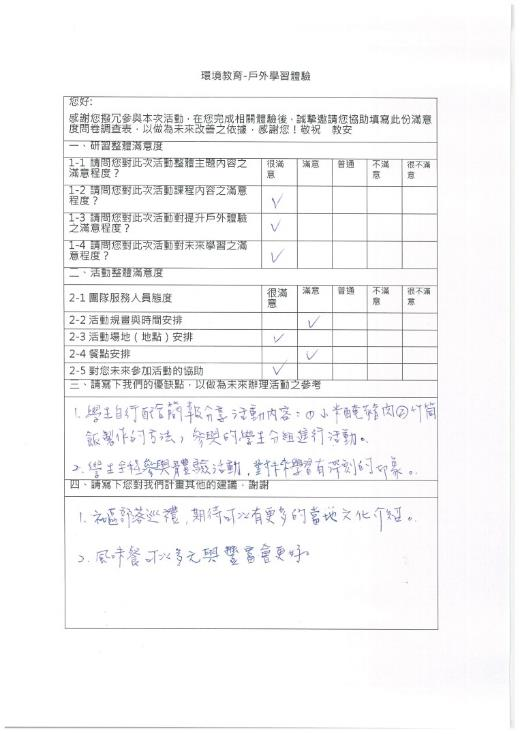 環境教育-戶外學習體驗
您好:
感謝您撥冗參與本次活動，在您完成相關體驗後，誠摯邀請您協助填寫此份滿意
度問卷調查表，以做為未來改善之依據，感謝您！敬祝　教安
一、研習整體滿意度
1-1 請問您對此次活動整體主題內容之
滿意程度？
很滿
意
滿意
普通
不滿
意
很不滿
意
1-2 請問您對此次活動課程內容之滿意
程度？
✓
1-3 請問您對此次活動對提升戶外體驗
之滿意程度？
✓
1-4 請問您對此次活動對未來學習之滿
意程度？
✓
二、活動整體滿意度
2-1 團隊服務人員態度
很滿
意
滿意
普通
不滿
意
很不滿
意
2-2 活動規畫與時間安排
✓
2-3 活動場地（地點）安排
✓
2-4 餐點安排
✓
2-5 對您未來參加活動的協助
✓
三、請寫下我們的優缺點，以做為未來辦理活動之參考
1. 學生自行配合簡報分享活動內容：①小米醃豬肉②竹筒
飯製作的方法，參與的學生分組進行活動。
2. 學生全程參與體驗活動，對學習有深刻的印象。
四、請寫下您對我們計畫其他的建議，謝謝
1. 社區部落巡禮，期待可以有更多的當地文化介紹。
2. 風味餐可以多元與豐富會更好。